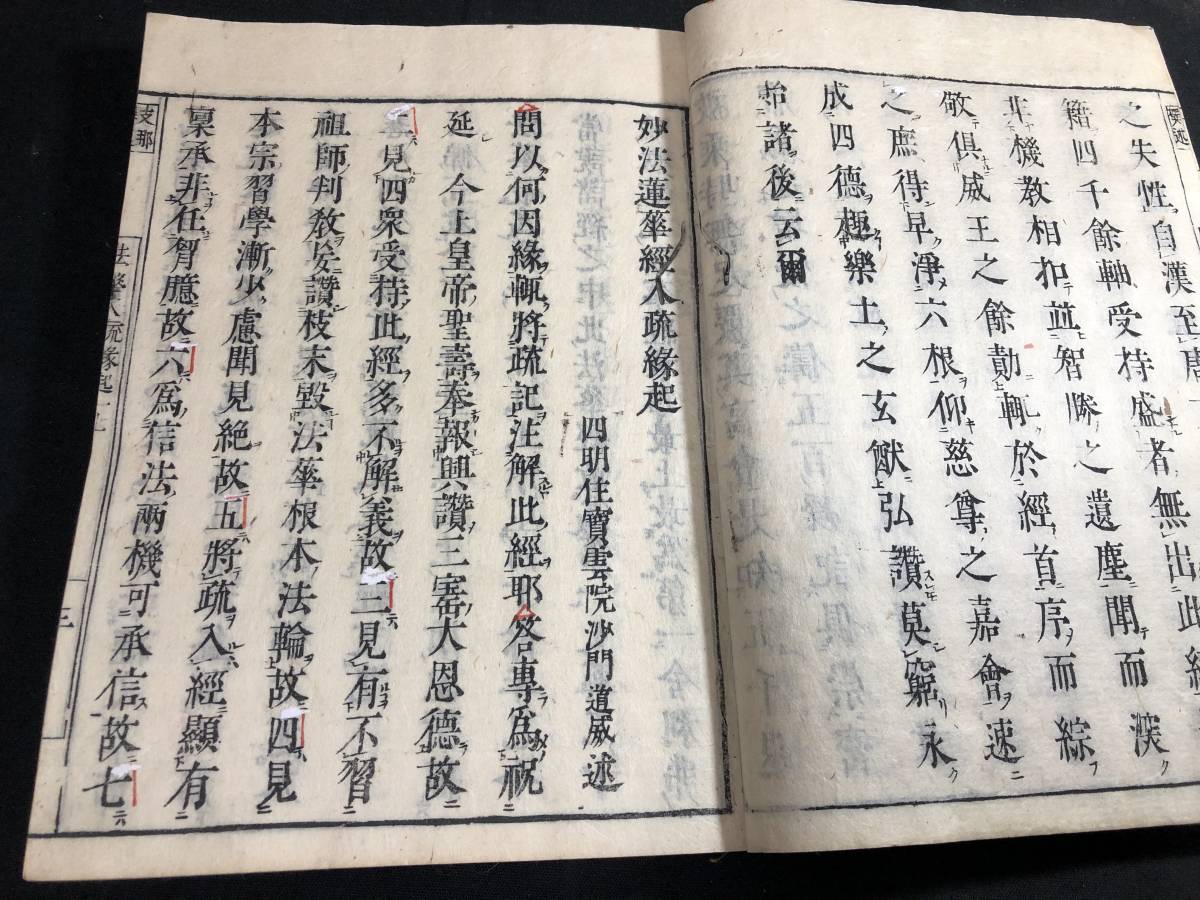 之失性自漢至唐
籍四千餘軸受持盛者無出此經
非機教相扣並智勝之遺塵聞而深
敬俱威王之餘勣輒於經首序而綜
之庶得早淨六根仰慈尊之嘉會速
成四德極樂土之玄猷弘讚莫窮永
貽諸後云爾
妙法蓮華經入疏緣起
四明住寶雲院沙門道威述
問以何因緣輒將疏記注解此經耶答專爲祝
延今上皇帝聖壽奉報興讚三寶大恩德故
二見四衆受持此經多不解義故三見有不習
祖師判教妄讚枝末毀法華根本法輪故四見
本宗習學漸少慮聞見絶故五將疏入經顯有
稟承非任胷臆故六爲信法兩機可承信故七
法華入疏緣起
三
支那